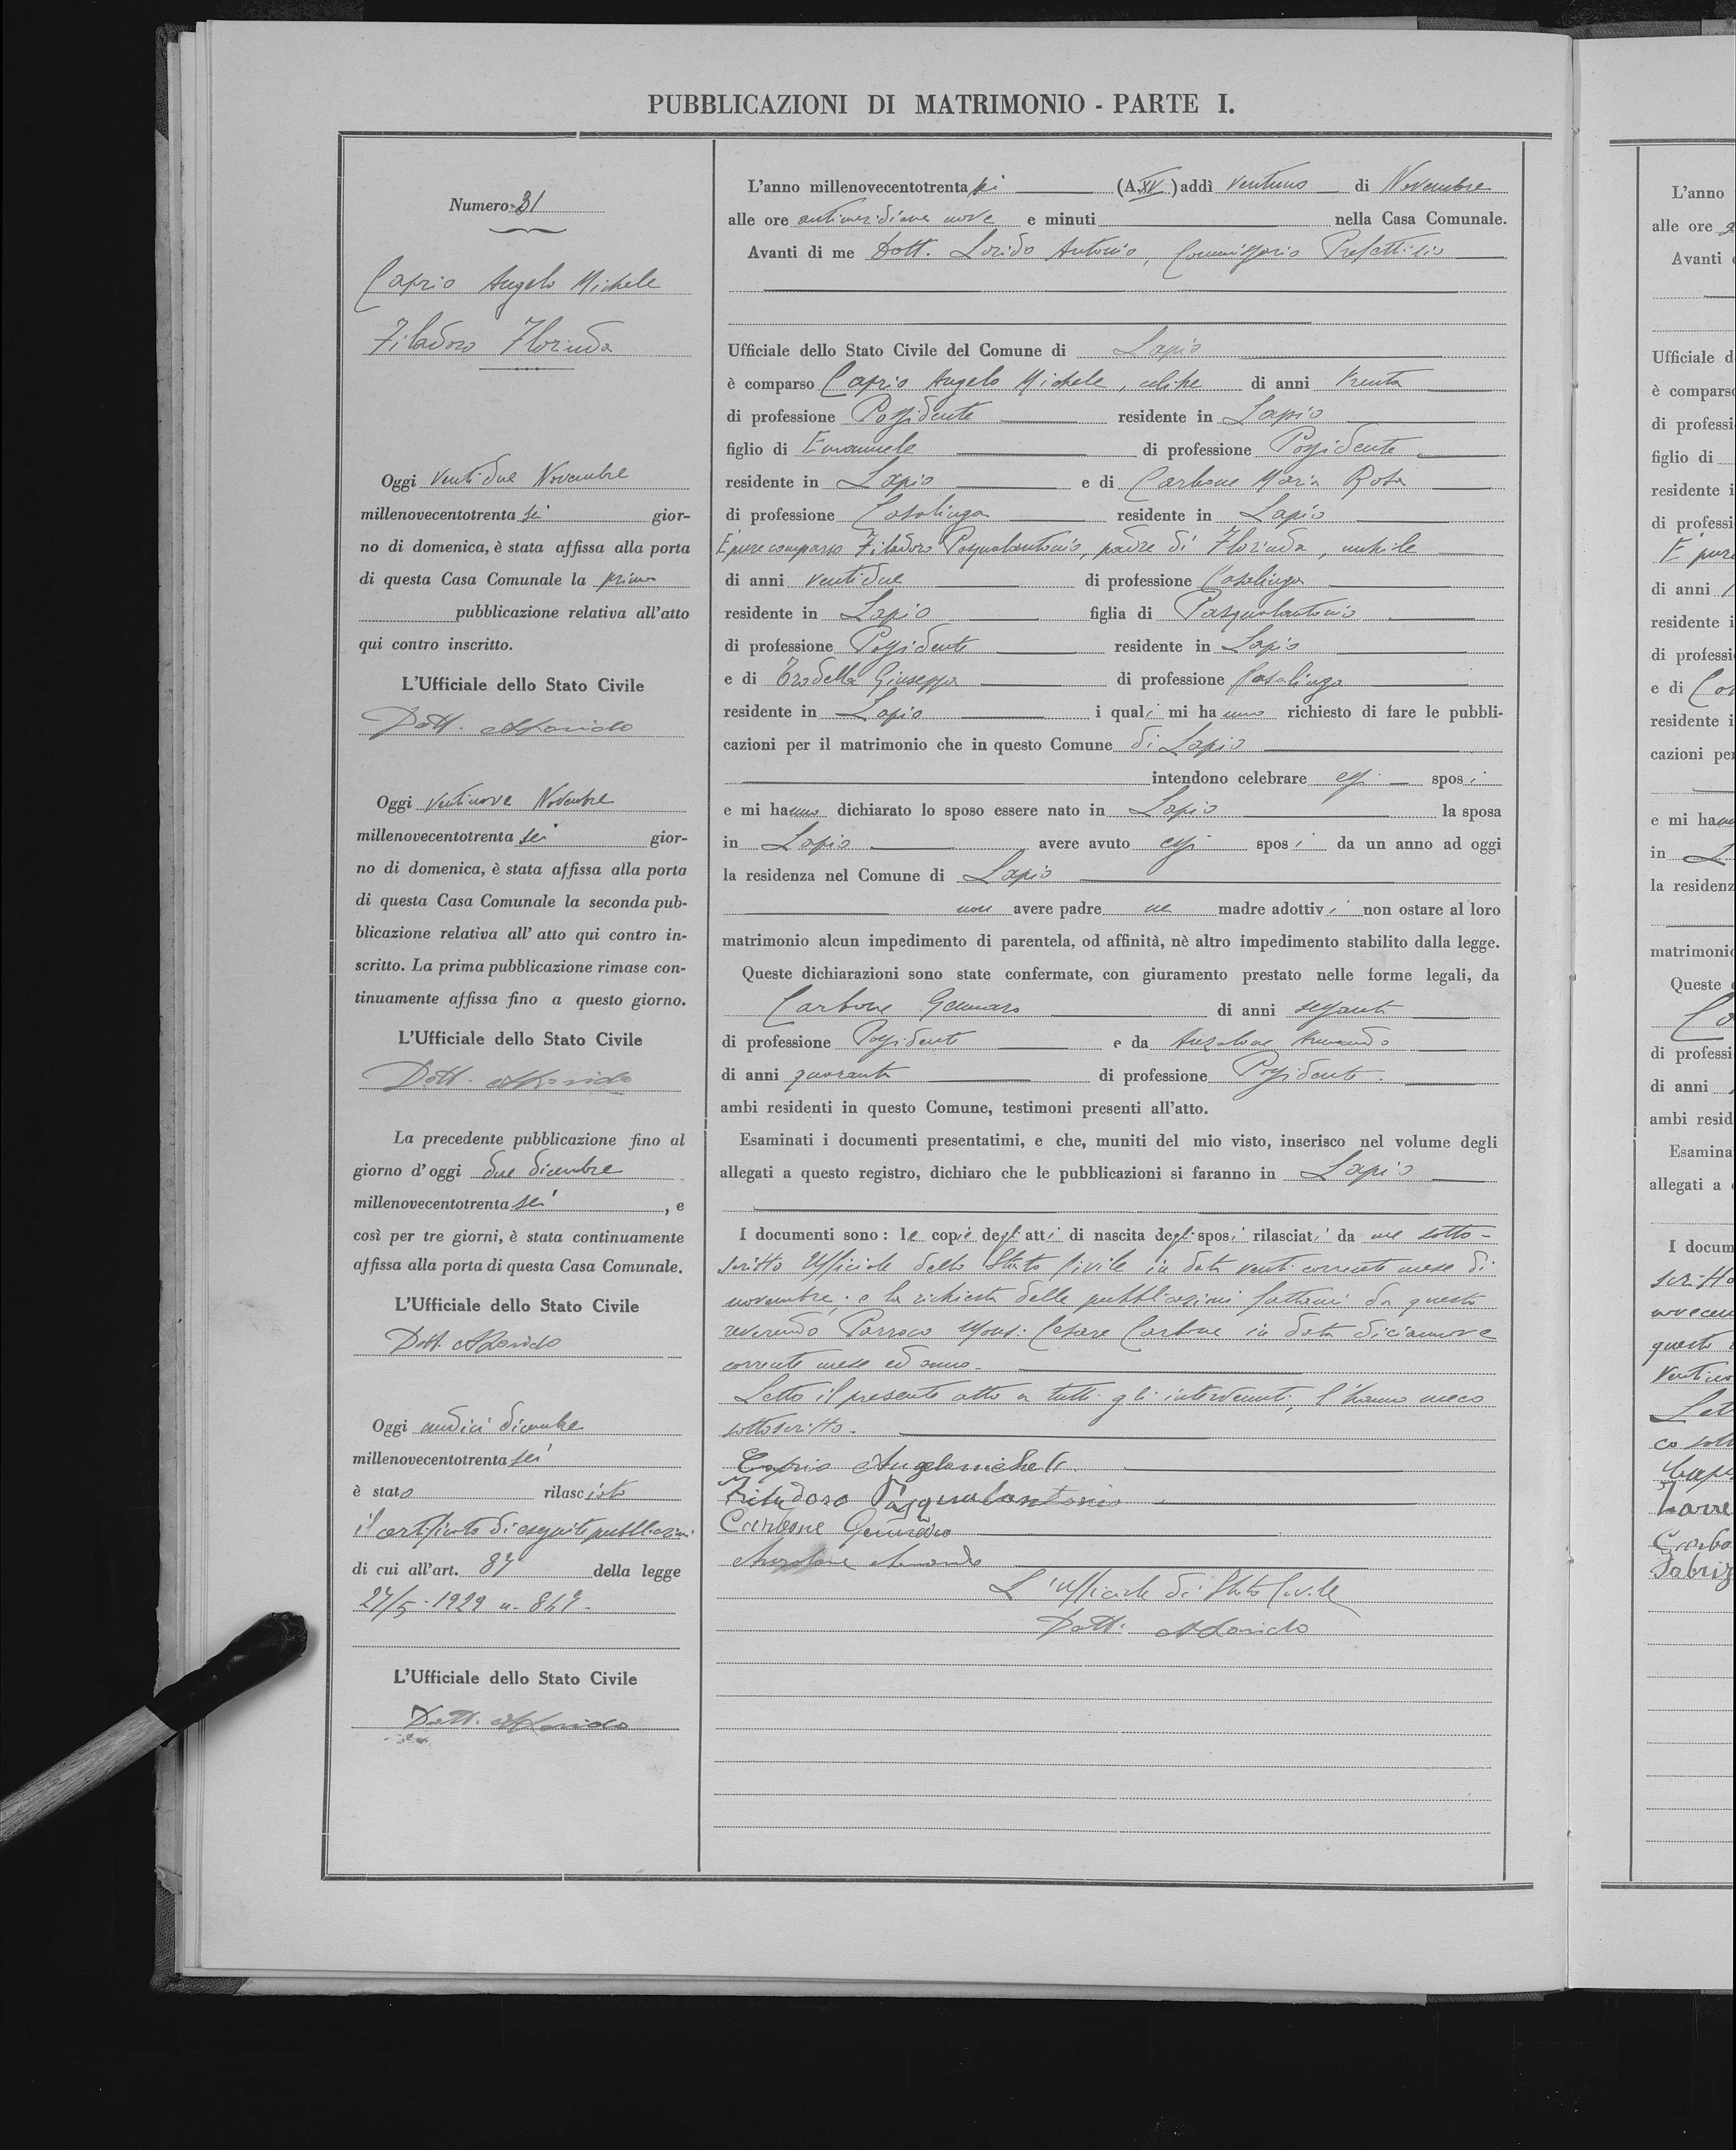 PUBBLICAZIONI DI MATRIMONIO - PARTE I.
Numero 31
Caprio Angelo Michele
Filadoro Florinda
Oggi ventidue Novembre
millenovecentotrenta sei gior-
no di domenica, è stata affissa alla porta
di questa Casa Comunale la prima
pubblicazione relativa all'atto
qui contro inscritto.
L'Ufficiale dello Stato Civile
Dott. ALorido
Oggi ventinove Novembre
millenovecentotrenta sei gior-
no di domenica, è stata affissa alla porta
di questa Casa Comunale la seconda pub-
blicazione relativa all' atto qui contro in-
scritto. La prima pubblicazione rimase con-
tinuamente affissa fino a questo giorno.
L'Ufficiale dello Stato Civile
Dott. ALorido
La precedente pubblicazione fino al
giorno d'oggi due dicembre
millenovecentotrenta sei , e
così per tre giorni, è stata continuamente
affissa alla porta di questa Casa Comunale.
L'Ufficiale dello Stato Civile
Dott. ALorido
Oggi undici dicembre
millenovecentotrenta sei
è stato rilasciato
il certificato di eseguite pubblicazioni
di cui all'art. 87 della legge
27/5-1929 n. 847.
L'Ufficiale dello Stato Civile
Dott. ALorido
L'anno millenovecentotrenta sei (A. XV ) addì ventuno di Novembre
alle ore antimeridiane nove e minuti nella Casa Comunale.
Avanti di me Dott. Lorido Antonio, Commissario Prefettizio
Ufficiale dello Stato Civile del Comune di Lapio
è comparso Caprio Angelo Michele, celibe di anni trenta
di professione Possidente residente in Lapio
figlio di Emanuele di professione Possidente
residente in Lapio e di Carbone Maria Rosa
di professione Casalinga residente in Lapio
È pure comparso Filadoro Pasqualantonio, padre di Florinda, nubile
di anni ventidue di professione Casalinga
residente in Lapio figlia di Pasqualantonio
di professione Possidente residente in Lapio
e di Trodella Giuseppa di professione Casalinga
residente in Lapio i quali mi hanno richiesto di fare le pubbli-
cazioni per il matrimonio che in questo Comune di Lapio
intendono celebrare essi sposi
e mi hanno dichiarato lo sposo essere nato in Lapio la sposa
in Lapio avere avuto essi sposi da un anno ad oggi
la residenza nel Comune di Lapio
non avere padre ne madre adottivi non ostare al loro
matrimonio alcun impedimento di parentela, od affinità, nè altro impedimento stabilito dalla legge.
Queste dichiarazioni sono state confermate, con giuramento prestato nelle forme legali, da
Carbone Gennaro di anni sessanta
di professione Possidente e da Anzalone Armando
di anni quaranta di professione Possidente.
ambi residenti in questo Comune, testimoni presenti all'atto.
Esaminati i documenti presentatimi, e che, muniti del mio visto, inserisco nel volume degli
allegati a questo registro, dichiaro che le pubblicazioni si faranno in Lapio
I documenti sono: le copie degli atti di nascita degli sposi rilasciati da me sotto-
scritto Ufficiale dello Stato Civile in data venti corrente mese di
novembre; e la richiesta delle pubblicazioni fattami da questo
reverendo Parroco Mons. Cesare Carbone in data diciannove
corrente mese ed anno.
Letto il presente atto a tutti gli intervenuti, l'hanno meco
sottoscritto.
Caprio Angelomichele
Filadoro Pasqualantonio
Carbone Gennaro
Anzalone Armando
L'Ufficiale di Stato Civile
Dott. ALorido
L'anno
alle ore
Avanti
Ufficiale d
è comparso
di professi
figlio di
residente i
di professi
E pure
di anni
residente i
di professi
e di
residente i
cazioni per
e mi ha
in
la residenz
matrimonio
Queste
di professi
di anni
ambi resid
Esamina
allegati a
I docum
scritto
questo